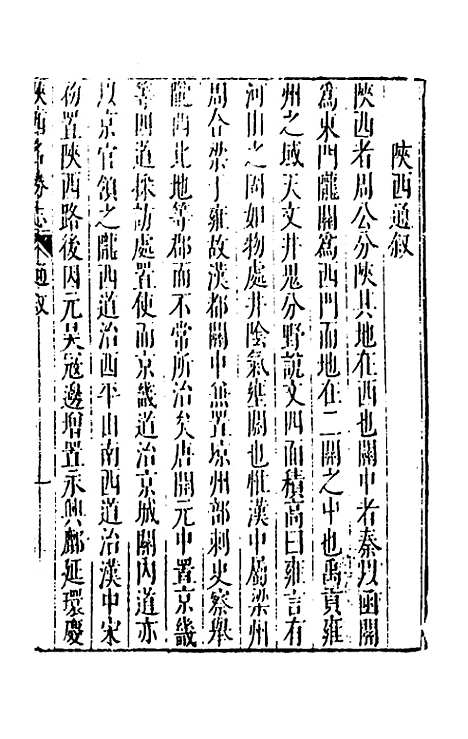 陜西通叙
陜西者周公分陜其地在西也關中者秦以函關
爲東門隴關爲西門而地在二關之中也禹貢雍
州之域天文井鬼分野說文四面積高曰雍言有
河山之固如物處井陰氣壅閼也惟漢中屬梁州
周合梁于雍故漢都關中無置凉州部刺史察舉
隴西北地等郡而不常所治矣唐開元中置京畿
等四道採訪處置使而京畿道治京城關內道亦
以京官領之隴西道治西平山南西道治漢中宋
初置陜西路後因元昊冦邊增置永興鄜延環慶
陜西名勝志 通叙 一